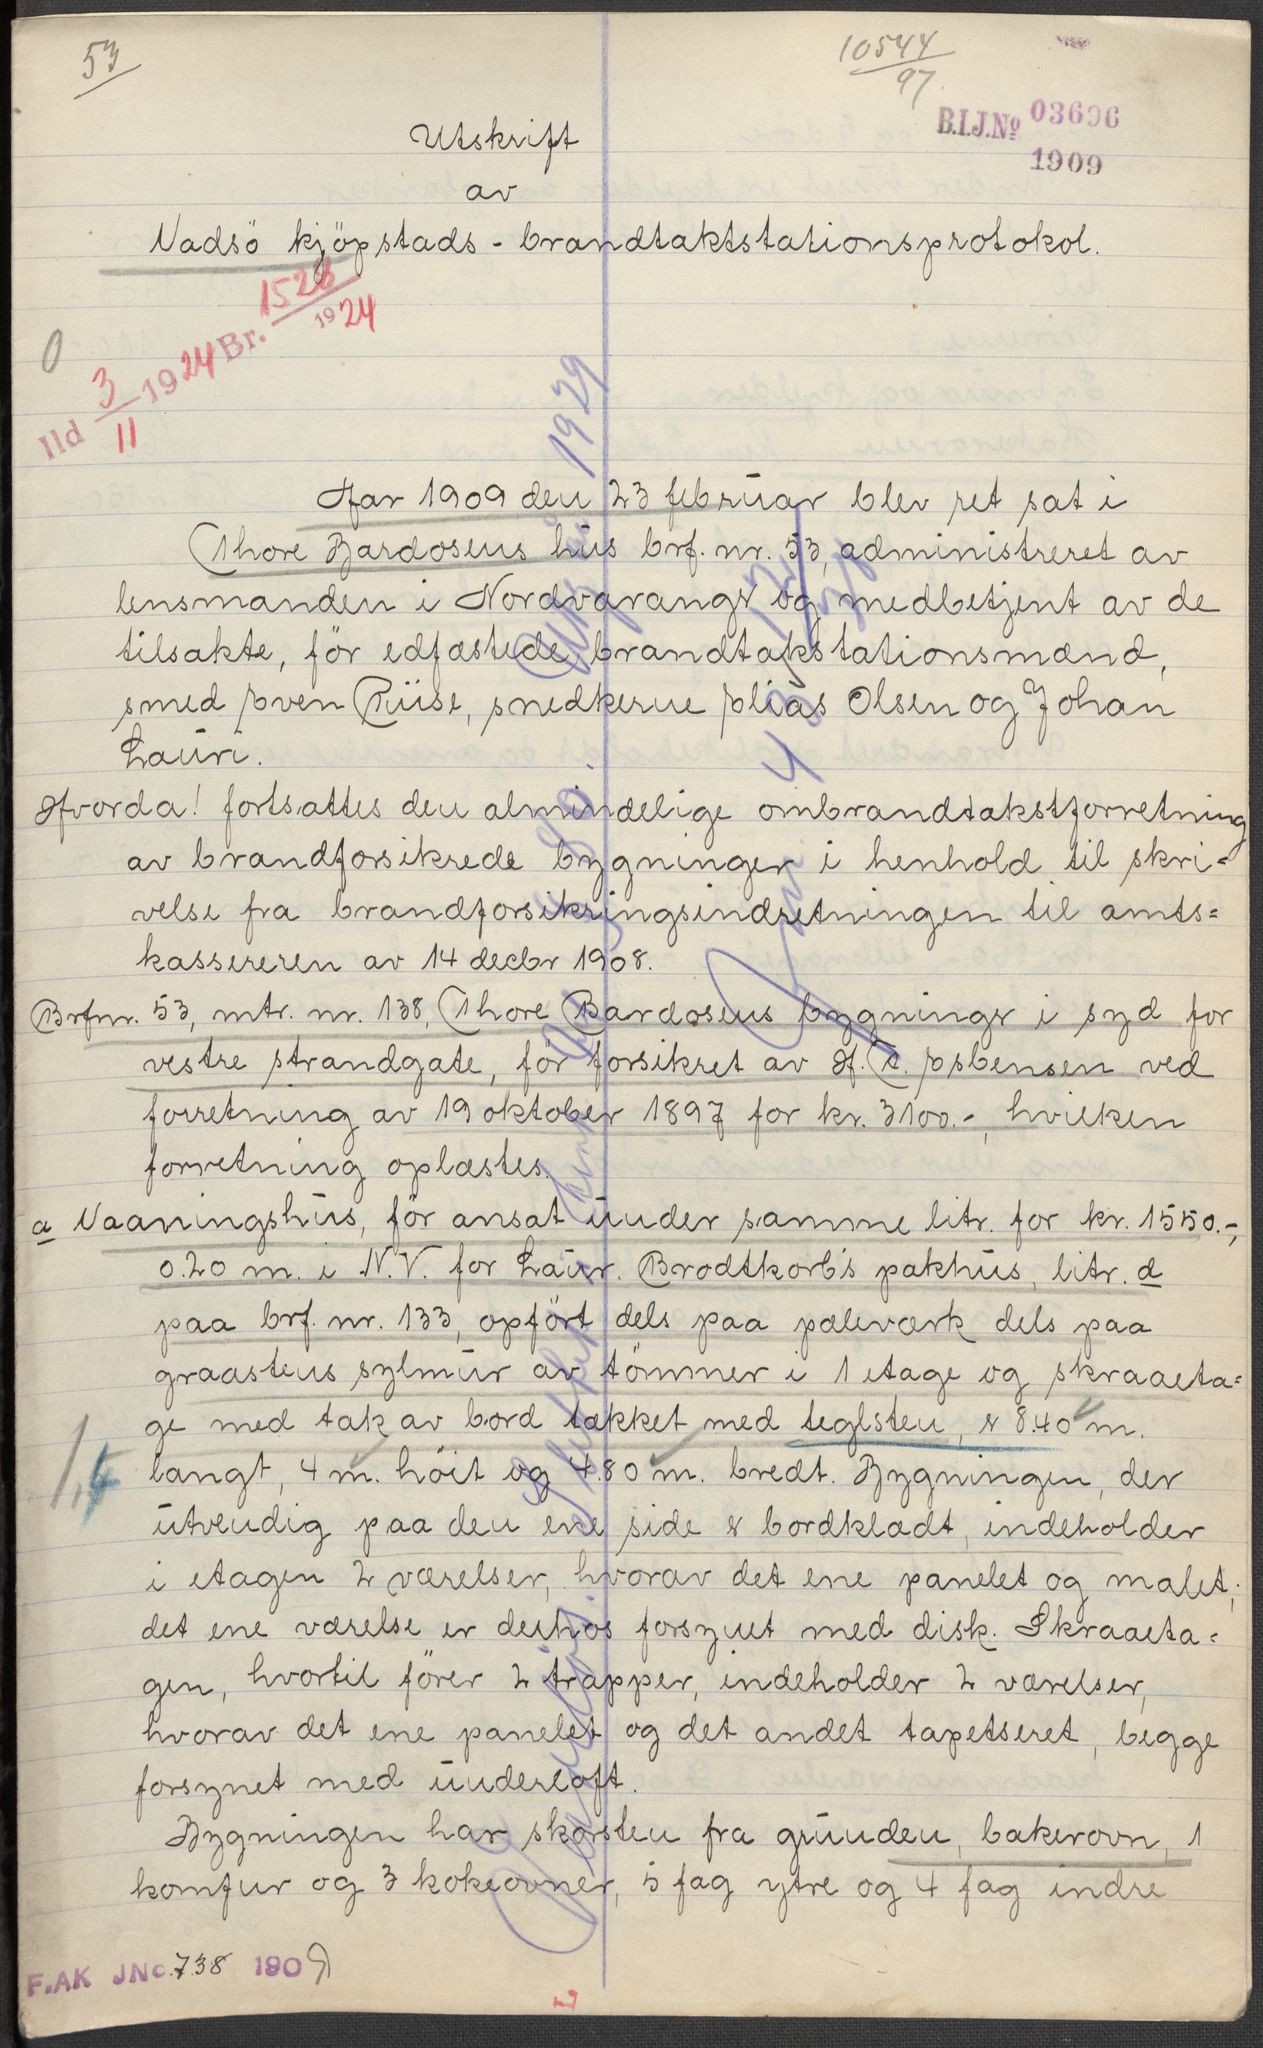 53
10544
97
B.I.J.No 03606
1909
Utskrift
av
Vadsö kjöpstads-brandtakstationsprotokol.
Ild 3/11 1924 Br. 1528
1924
0
Aar 1909 den 23 februar blev ret sat i
Thore Bardosens hus brf. nr. 53, administreret av
lensmanden i Nordvaranger og medbetjent av de
tilsakte, för edfæstede brandtakstationsmænd,
smed Sven Riise, snedkerne Elias Olsen og Johan
Lauri.
Hvorda! fortsattes den almindelige ombrandtakstforretning
av brandforsikrede bygninger i henhold til skri=
velse fra brandforsikringsindretningen til amts=
kassereren av 14 decbr 1908.
Brfnr. 53, mtr. nr. 138, Thore Bardosens bygninger i syd for
vestre strandgate, för forsikret av H. C. Esbensen ved
forretning av 19 oktober 1897 for kr. 3100.-, hvilken
forretning oplæstes.
a Vaaningshus, för ansat under samme litr. for kr. 1550.-,
0.20 m. i N.V. for Laur. Brodtkorb's pakhus, litr. d
paa brf. nr. 133, opfört dels paa pæleværk dels paa
graastens sylmur av tömmer i 1 etage og skraaeta=
ge med tak av bord tækket med teglsten, er 8.40 m.
langt, 4 m. höit og 4.80 m. bredt. Bygningen, der
utvendig paa den ene side er bordklædt, indeholder
i etagen 2 værelser, hvorav det ene panelet og malet;
det ene værelse er derhos forsynet med disk. Skraaeta=
gen, hvortil förer 2 trapper, indeholder 2 værelser,
hvorav det ene panelet og det andet tapetseret, begge
forsynet med underloft.
Bygningen har skorsten fra grunden, bakerovn, 1
komfur og 3 kokeovner, 5 fag ytre og 4 fag indre
1,4
1929
F.AK JNo. 738 1909